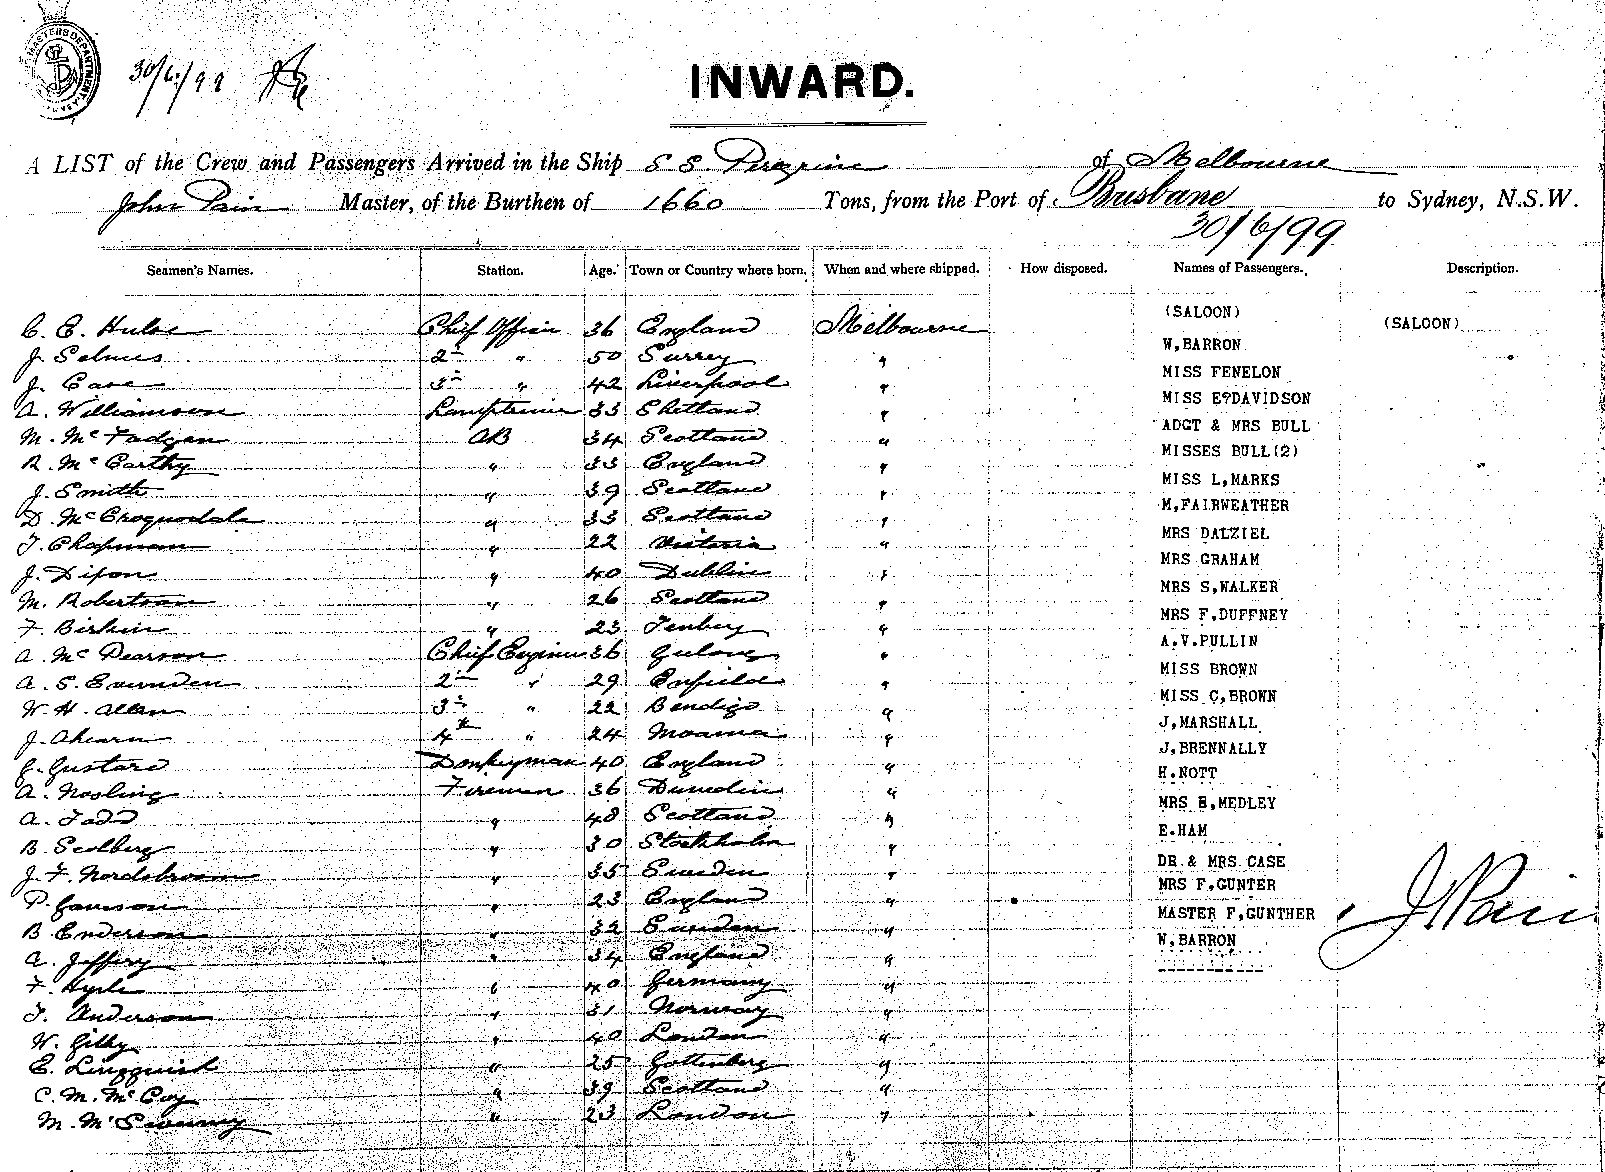 MASTERS DEPARTMENT
30/6/99
INWARD.
A LIST of the Crew and Passengers Arrived in the Ship S.S. Peregrine of Melbourne
John Pain Master, of the Burthen of 1660 Tons, from the Port of Brisbane to Sydney, N.S.W.
30/6/99
Seamen's Names. Station. Age. Town or Country where born. When and where shipped. How disposed. Names of Passengers. Description.
(SALOON) (SALOON)
C. E. Hulse Chief Officer 36 England Melbourne
W,BARRON
J. Selmes 2nd " 50 Surrey "
MISS FENELON
J. Cave 3rd " 42 Liverpool "
MISS E?DAVIDSON
A. Williamson Lamptrimmer 33 Shetland "
ADGT & MRS BULL
M. McFadgen AB 34 Scotland "
MISSES BULL(2)
R. McCarthy " 33 England "
MISS L,MARKS
J. Smith " 39 Scotland "
M,FAIRWEATHER
D. McCroquodale " 33 Scotland "
MRS DALZIEL
T. Chapman " 22 Victoria "
MRS GRAHAM
J. Dixon " 40 Dublin "
MRS S,WALKER
M. Robertson " 26 Scotland "
MRS F.DUFFNEY
F. Birkin " 23 Tenby "
A.V.PULLIN
A. McPearson Chief Engineer 36 Geelong "
MISS BROWN
A. S. 2nd " 29 Enfield "
MISS C,BROWN
W. H. Allen 3rd " 22 Bendigo "
J,MARSHALL
J. Ahearn 4th " 24 Moama "
J,BRENNALLY
G. Gustard Donkeyman 40 England "
H.NOTT
A. Nosling Fireman 36 Dunedin "
MRS B,MEDLEY
A. Todd " 48 Scotland "
E.HAM
B. Scolberg " 30 Stockholm "
DR & MRS CASE
J. F. Nordstroom " 35 Sweden "
MRS F.GUNTER
P. Jamson " 23 England "
MASTER F,GUNTHER
B. Enderson " 32 Sweden "
W.BARRON
J Pain
A. Jeffery " 34 England "
F. " 40 Germany "
T. Anderson " 31 Norway "
W. Gilby " 40 London "
E. Lingquist " 25 Gottenberg "
C. M. McCoy " 39 Scotland "
M. McSweeney " 23 London "